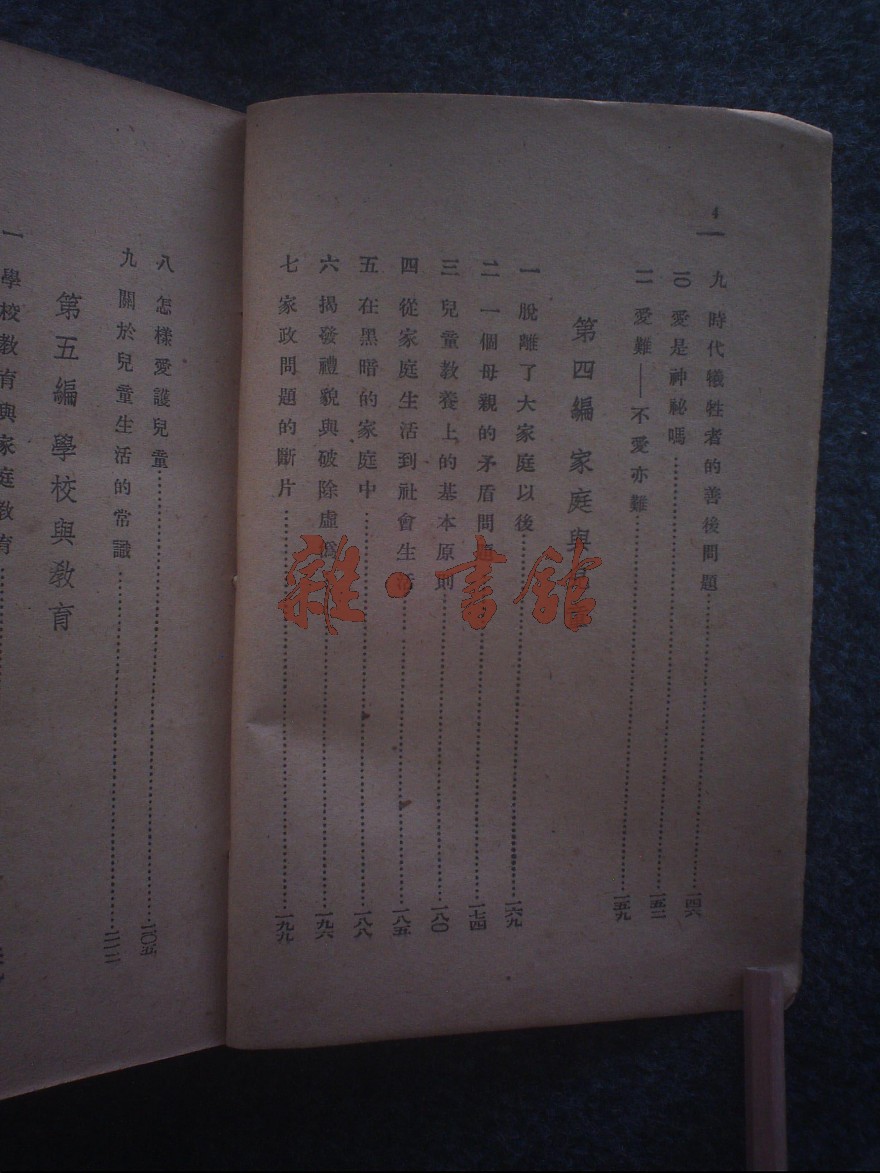 4
九 時代犧牲者的善後問題……一四六
一〇 愛是神祕嗎……一五二
一一 愛難——不愛亦難……一五九
第四編 家庭與
一 脫離了大家庭以後……一六九
二 一個母親的矛盾問題……一七四
三 兒童教養上的基本原則……一八〇
四 從家庭生活到社會生活……一八五
五 在黑暗的家庭中……一八八
六 揭發禮貌與破除虛僞……一九六
七 家政問題的斷片……一九九
雜·書館
八 怎樣愛護兒童……二〇五
九 關於兒童生活的常識……二一二
第五編 學校與教育
一 學校教育與家庭教育……